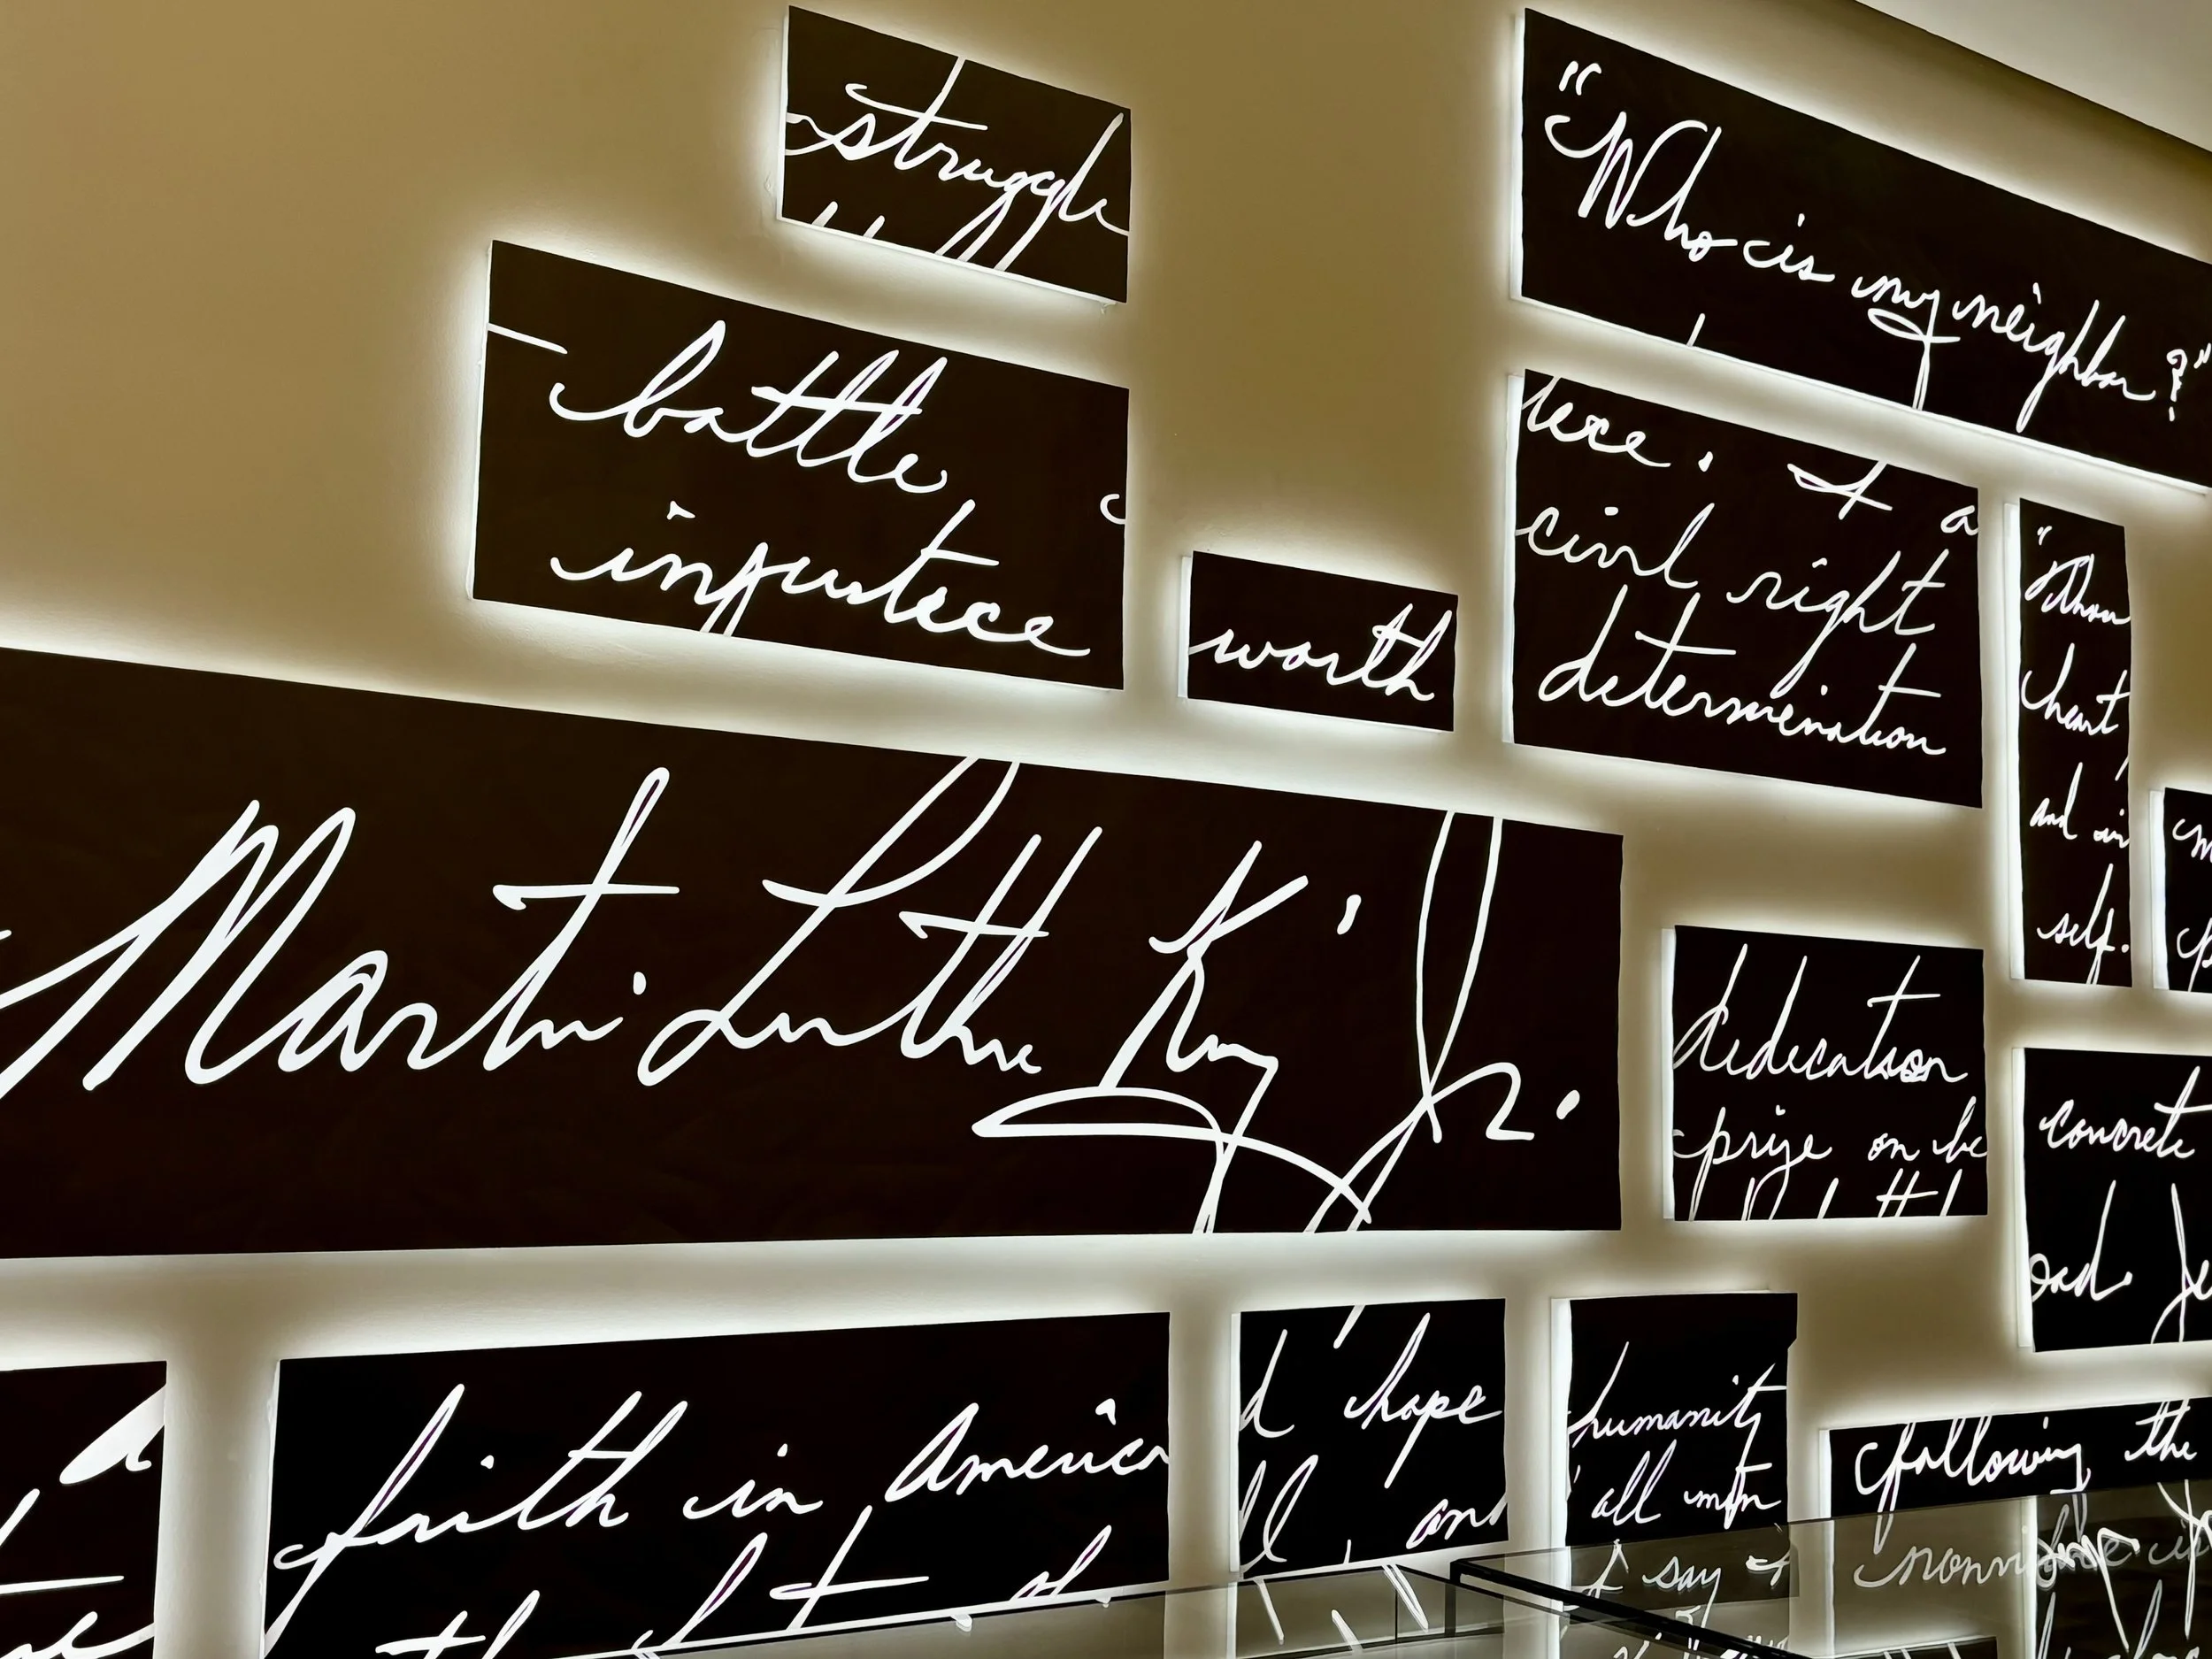 struggle
"Who is my neighbor?"
battle
injustice
here. I a
civil right
determination
worth
"Thou
heart,
and in
self.
Martin Luther King Jr.
dedication
prize on be
concrete
oad. Je
faith in America
d hope
ll, and
humanity
all men
following the
I say